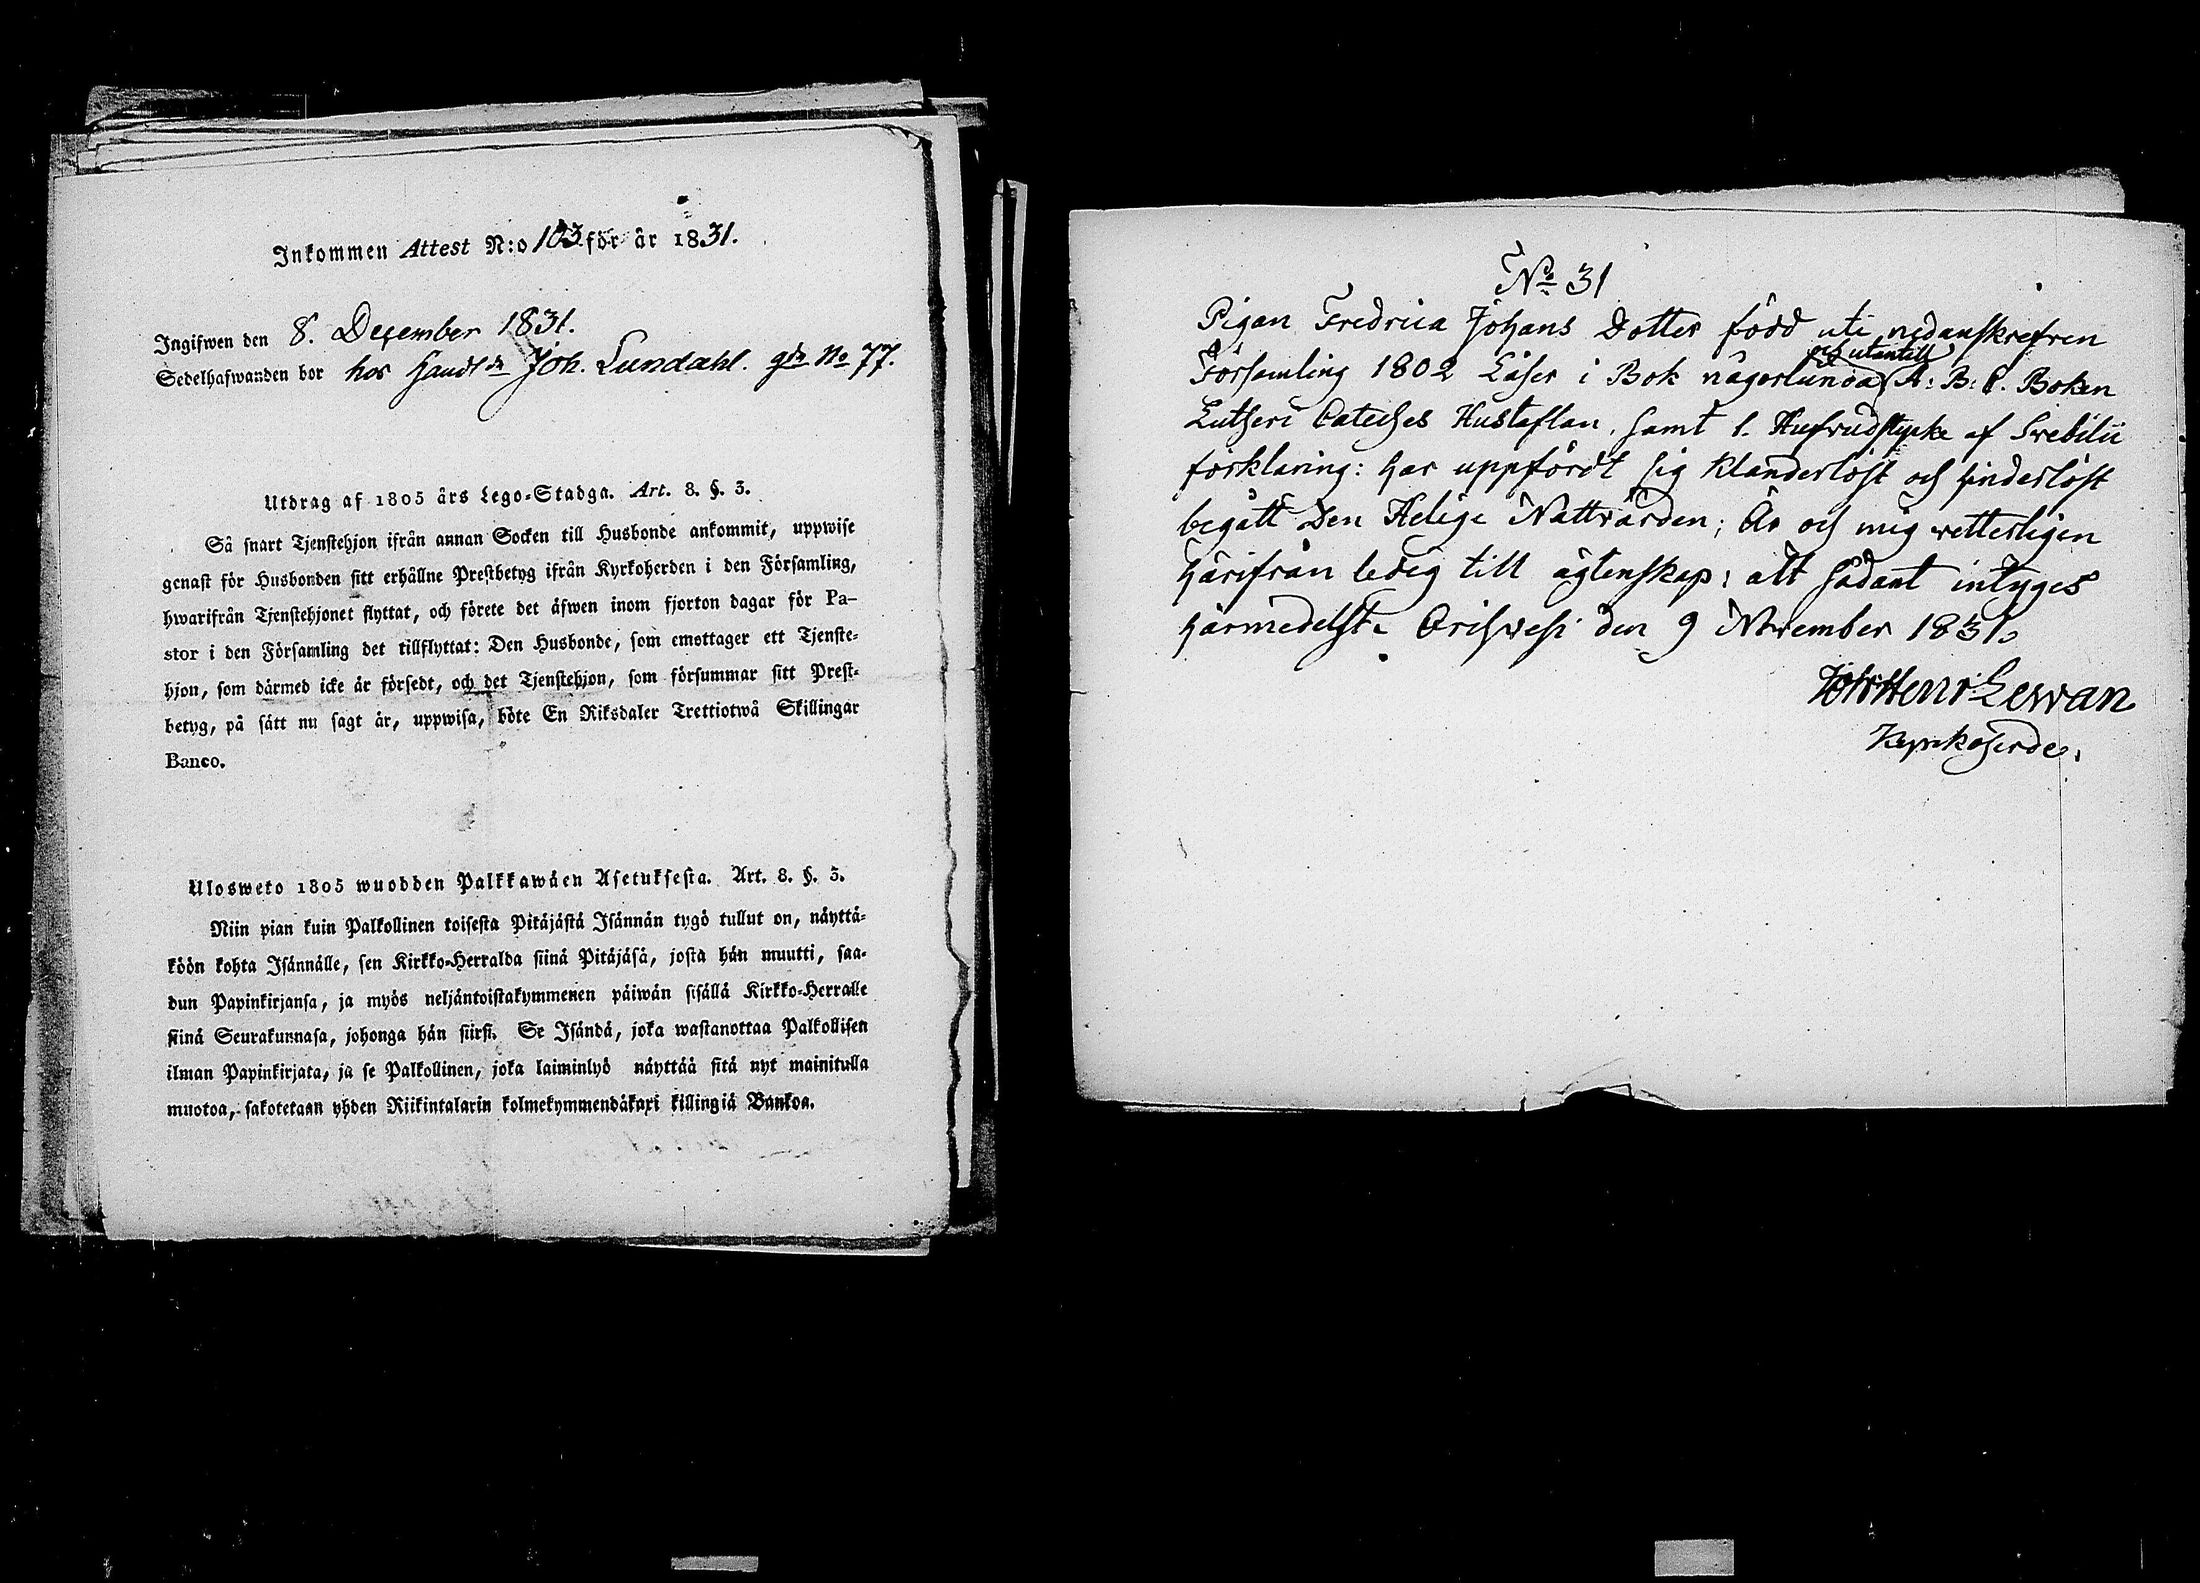 Inkommen Attest N:o 103 för år 1831.
Ingifwen den 8. December 1831.
Sedelhafwanden bor hos Handl:dn Joh. Lundahl. gdn No 77.
Utdrag af 1805 års Lego-Stadga. Art. 8. §. 3.
Så snart Tjenstehjon ifrån annan Socken till Husbonde ankommit, uppwise
genast för Husbonden sitt erhållne Prestbetyg ifrån Kyrkoherden i den Församling,
hwarifrån Tjenstehjonet flyttat, och förete det äfwen inom fjorton dagar för Pa-
stor i den Församling det tillflyttat: Den Husbonde, som emottager ett Tjenste-
hjon, som därmed icke är försedt, och det Tjenstehjon, som försummar sitt Prest-
betyg, på sätt nu sagt är, uppwisa, böte En Riksdaler Trettiotwå Skillingar
Banco.
Ulosweto 1805 wuodden Palkkawäen Asetuksesta. Art. 8. §. 3.
Niin pian kuin Palkollinen toisesta Pitäjästä Isännän tygö tullut on, näyttä-
köön kohta Isännälle, sen Kirkko-Herralda siinä Pitäjäsä, josta hän muutti, saa-
dun Papinkirjansa, ja myös neljäntoistakymmenen päiwän sisällä Kirkko-Herralle
siinä Seurakunnasa, johonga hän siirsi. Se Isändä, joka wastanottaa Palkollisen
ilman Papinkirjata, ja se Palkollinen, joka laiminlyö näyttää sitä nyt mainitulla
muotoa, sakotetaan yhden Riikintalarin kolmekymmendäkaxi killingiä Bankoa.
No 31
Pigan Fredrica Johans Dotter född uti nedanskrefven
Församling 1802 Läser i Bok någorlunda och utantill A: B: C. Boken
Lutheri Cateches Hustaflan, samt 1. Hufvudstycke af Svebilii
förklaring: har uppfördt sig klanderlöst och hinderlöst
begått Den Helige Nattvarden; Är och mig vetterligen
härifrån ledig till ägtenskap; alt sådant intyges
härmedelst. Orihvesi den 9 November 1831.
Joh: Henr: Levvan
Kyrkoherde.